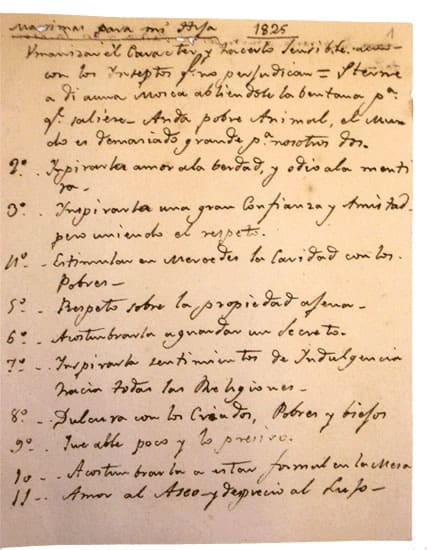 Maximas para mi Hija 1825
1
Umanizar el Caracter y hacerlo Sensible aun
con los Insectos q.e no perjudican = Sterne
a di auna Mosca abliendole la bentana p.a
q.e saliese- Anda pobre Animal, el Mun-
do es demaciado grande p.a nosotros dos.
2º - Ispirarla amor ala berdad, y odio ala menti
ra-
3º - Inspirarla una gran Confianza y Amistad
pero uniendo el respeto.
4º - Estimular en Mercedes la Caridad con los
Pobres-
5º - Respeto sobre la propiedad ajena-
6º - Acostumbrarla a guardar un Secreto.
7º - Inspirarla sentimientos de Indulgencia
hacia todas las Religiones-
8º - Dulcura con los Criados, Pobres y biejos
9º - Que able poco y lo preciso.
10 - Acostumbrarla a estar formal en la Mesa
11 - Amor al Aseo y desprecio al Lujo-